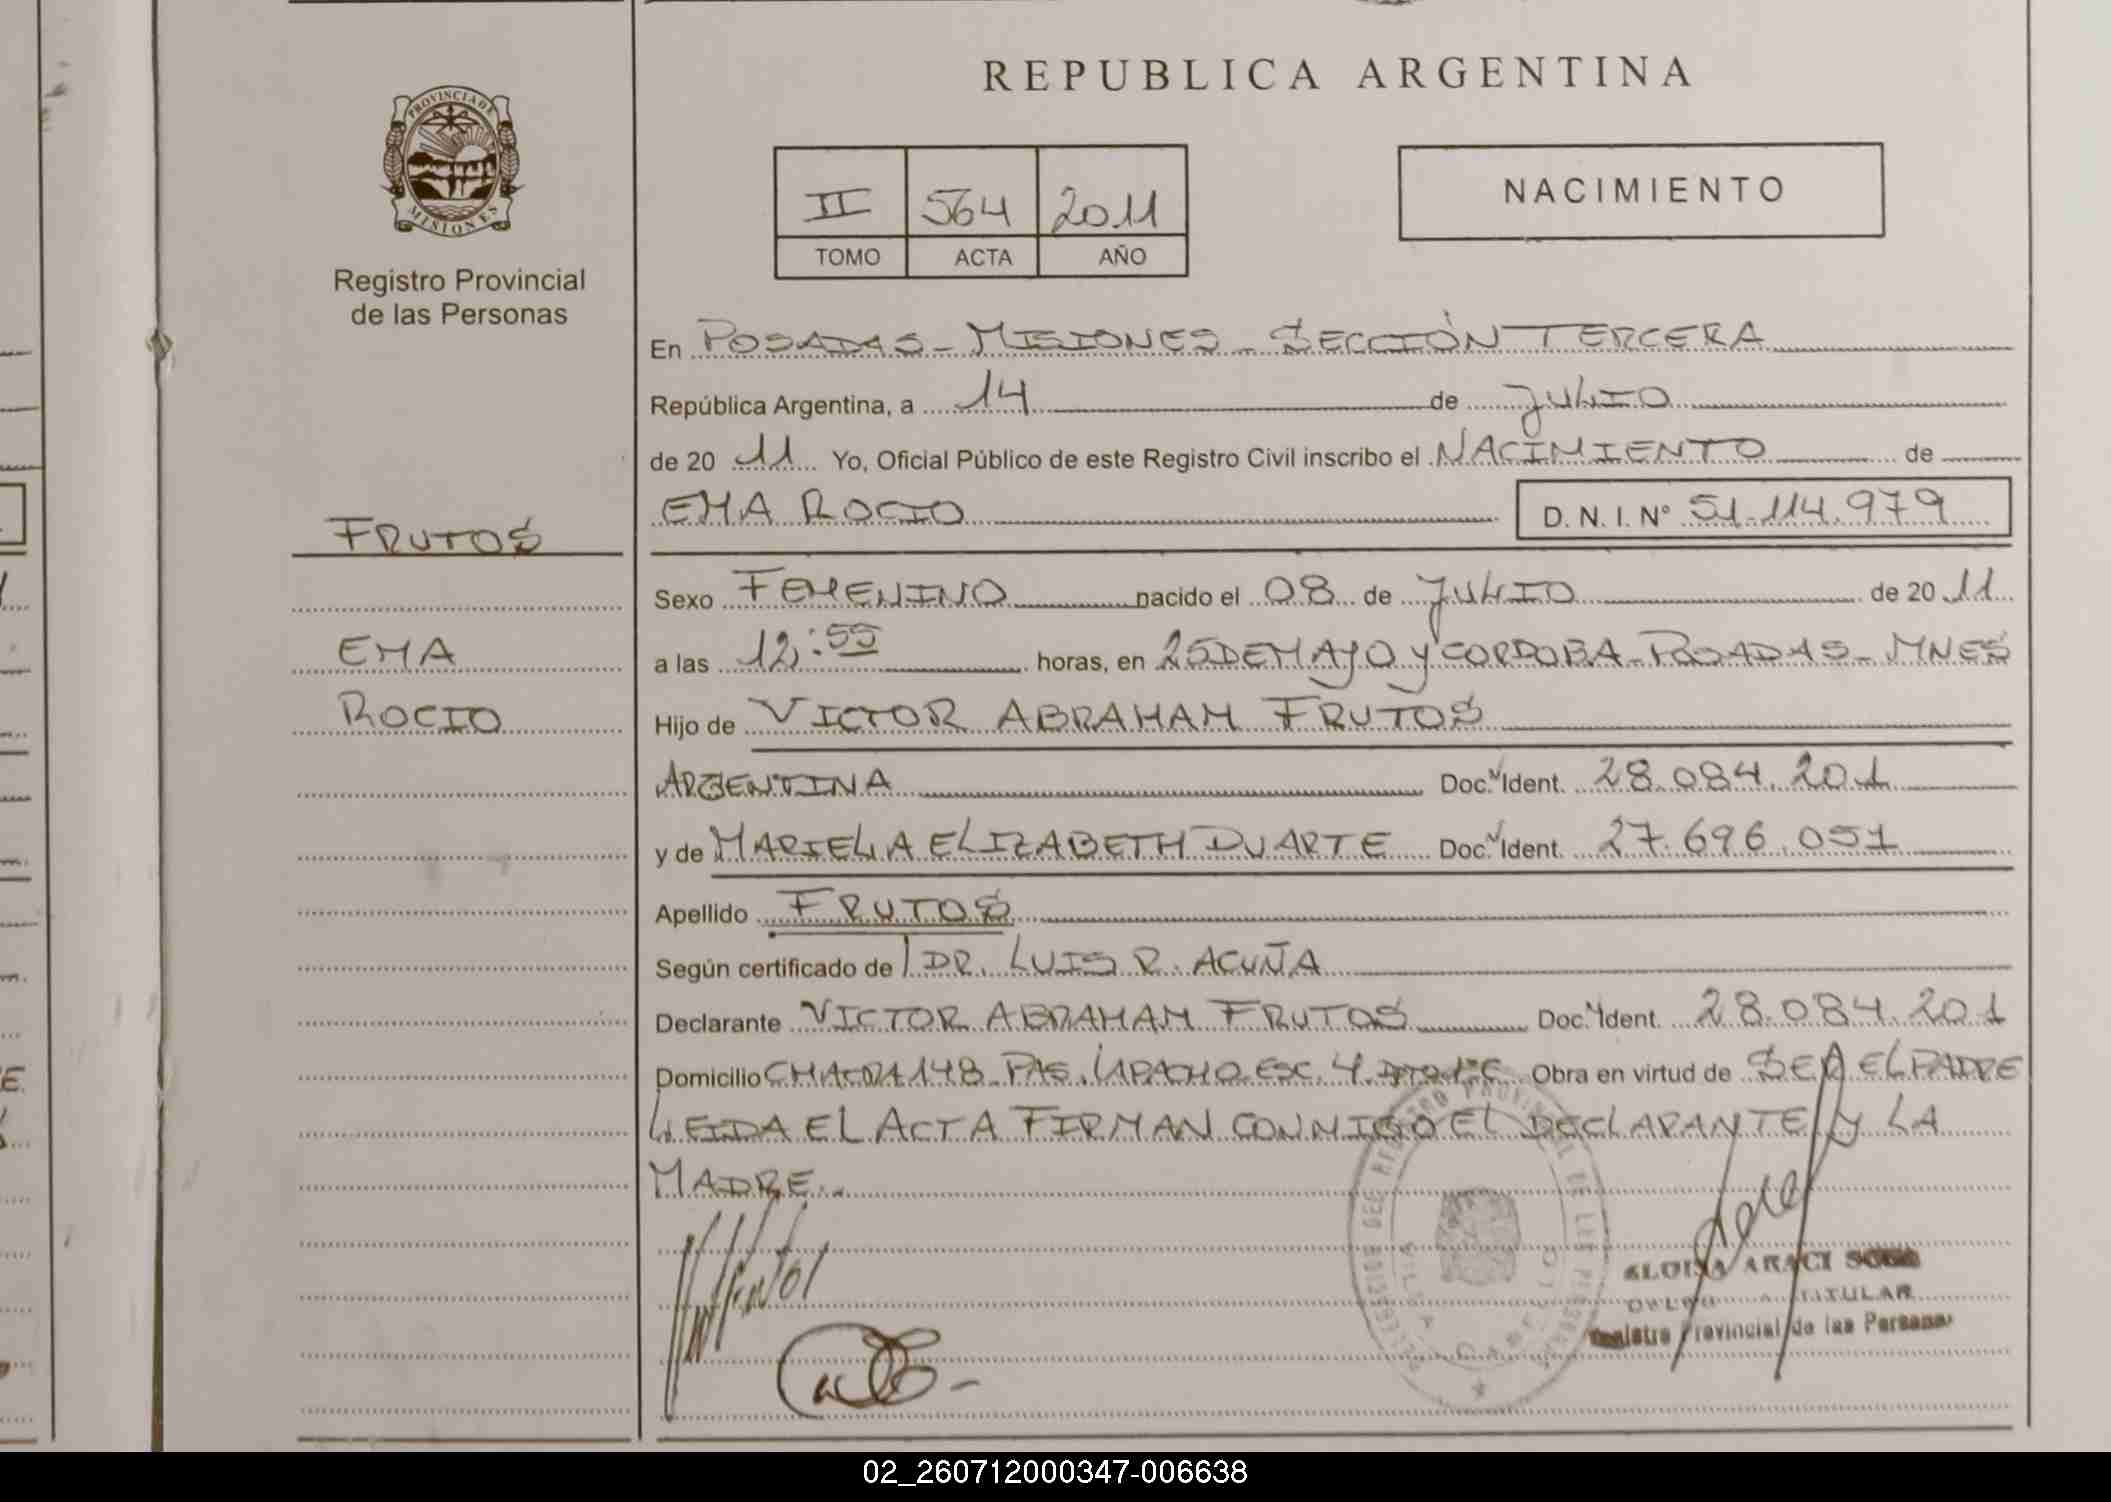 REPUBLICA ARGENTINA
PROVINCIA DE
MISIONES
Registro Provincial
de las Personas
II 564 2011
TOMO ACTA AÑO
NACIMIENTO
En POSADAS - MISIONES - SECCIÓN TERCERA
República Argentina, a 14 de JULIO
de 20 11 Yo, Oficial Público de este Registro Civil inscribo el NACIMIENTO de
EMA ROCIO D. N. I. Nº 51.114.979
FRUTOS
EMA
ROCIO
Sexo FEMENINO nacido el 08 de JULIO de 20 11
a las 12:55 horas, en 25 DE MAYO Y CORDOBA - POSADAS - MNES
Hijo de VICTOR ABRAHAM FRUTOS
ARGENTINA Doc. Ident. 28.084.201
y de MARIELA ELIZABETH DUARTE Doc. Ident. 27.696.051
Apellido FRUTOS
Según certificado de DR. LUIS R. ACUÑA
Declarante VICTOR ABRAHAM FRUTOS Doc. Ident. 28.084.201
Domicilio CHACRA 148 PAS. LAPACHO ESC. 4 DPTO 1º C Obra en virtud de SER EL PADRE
LEIDA EL ACTA FIRMAN CONMIGO EL DECLARANTE Y LA
MADRE.-
ARACI
TITULAR
Registro Provincial de las Personas
02_260712000347-006638